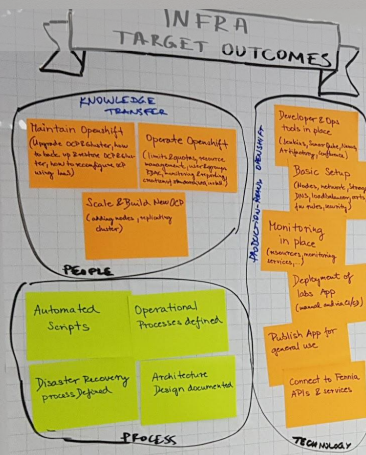 INFRA
TARGET OUTCOMES
KNOWLEDGE
TRANSFER
Maintain Openshift
(Upgrade OCP & cluster, how
to back up & restore OCP & clus-
ter, how to reconfigure OCP
using IaaS)
Operate Openshift
(limits & quotas, resource
management, users & groups
RBAC, monitoring & regarding
Scale & Build New OCP
(adding nodes, replicating
cluster)
PEOPLE
Automated
Scripts
Operational
Processes defined
Disaster Recovery
process Defined
Architecture
Design documented
PROCESS
PRODUCTION-READY OPENSHIFT
Developer & Ops
tools in place
(Jenkins, SonarQube,
Artifactory,
Basic Setup
(Nodes, network, storage
DNS, loadbalancer, ports
fw rules, security)
Monitoring
in place
(resources, monitoring
services, ..)
Deployment of
labs App
(manual and via CI/CD)
Publish App for
general use
Connect to Fennia
APIs & services
TECHNOLOGY